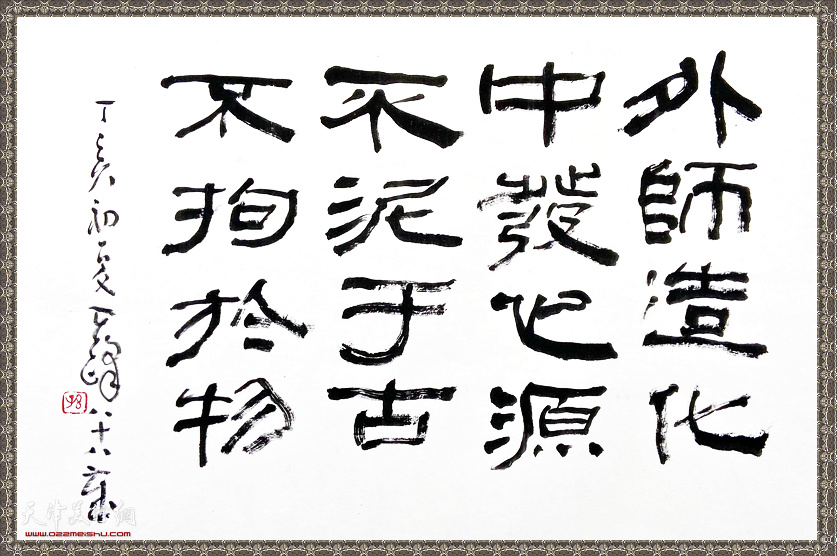 外師造化
中發心源
不泥于古
不拘於物
丁亥初夏
八十八歲
天津美術網
www.022meishu.com